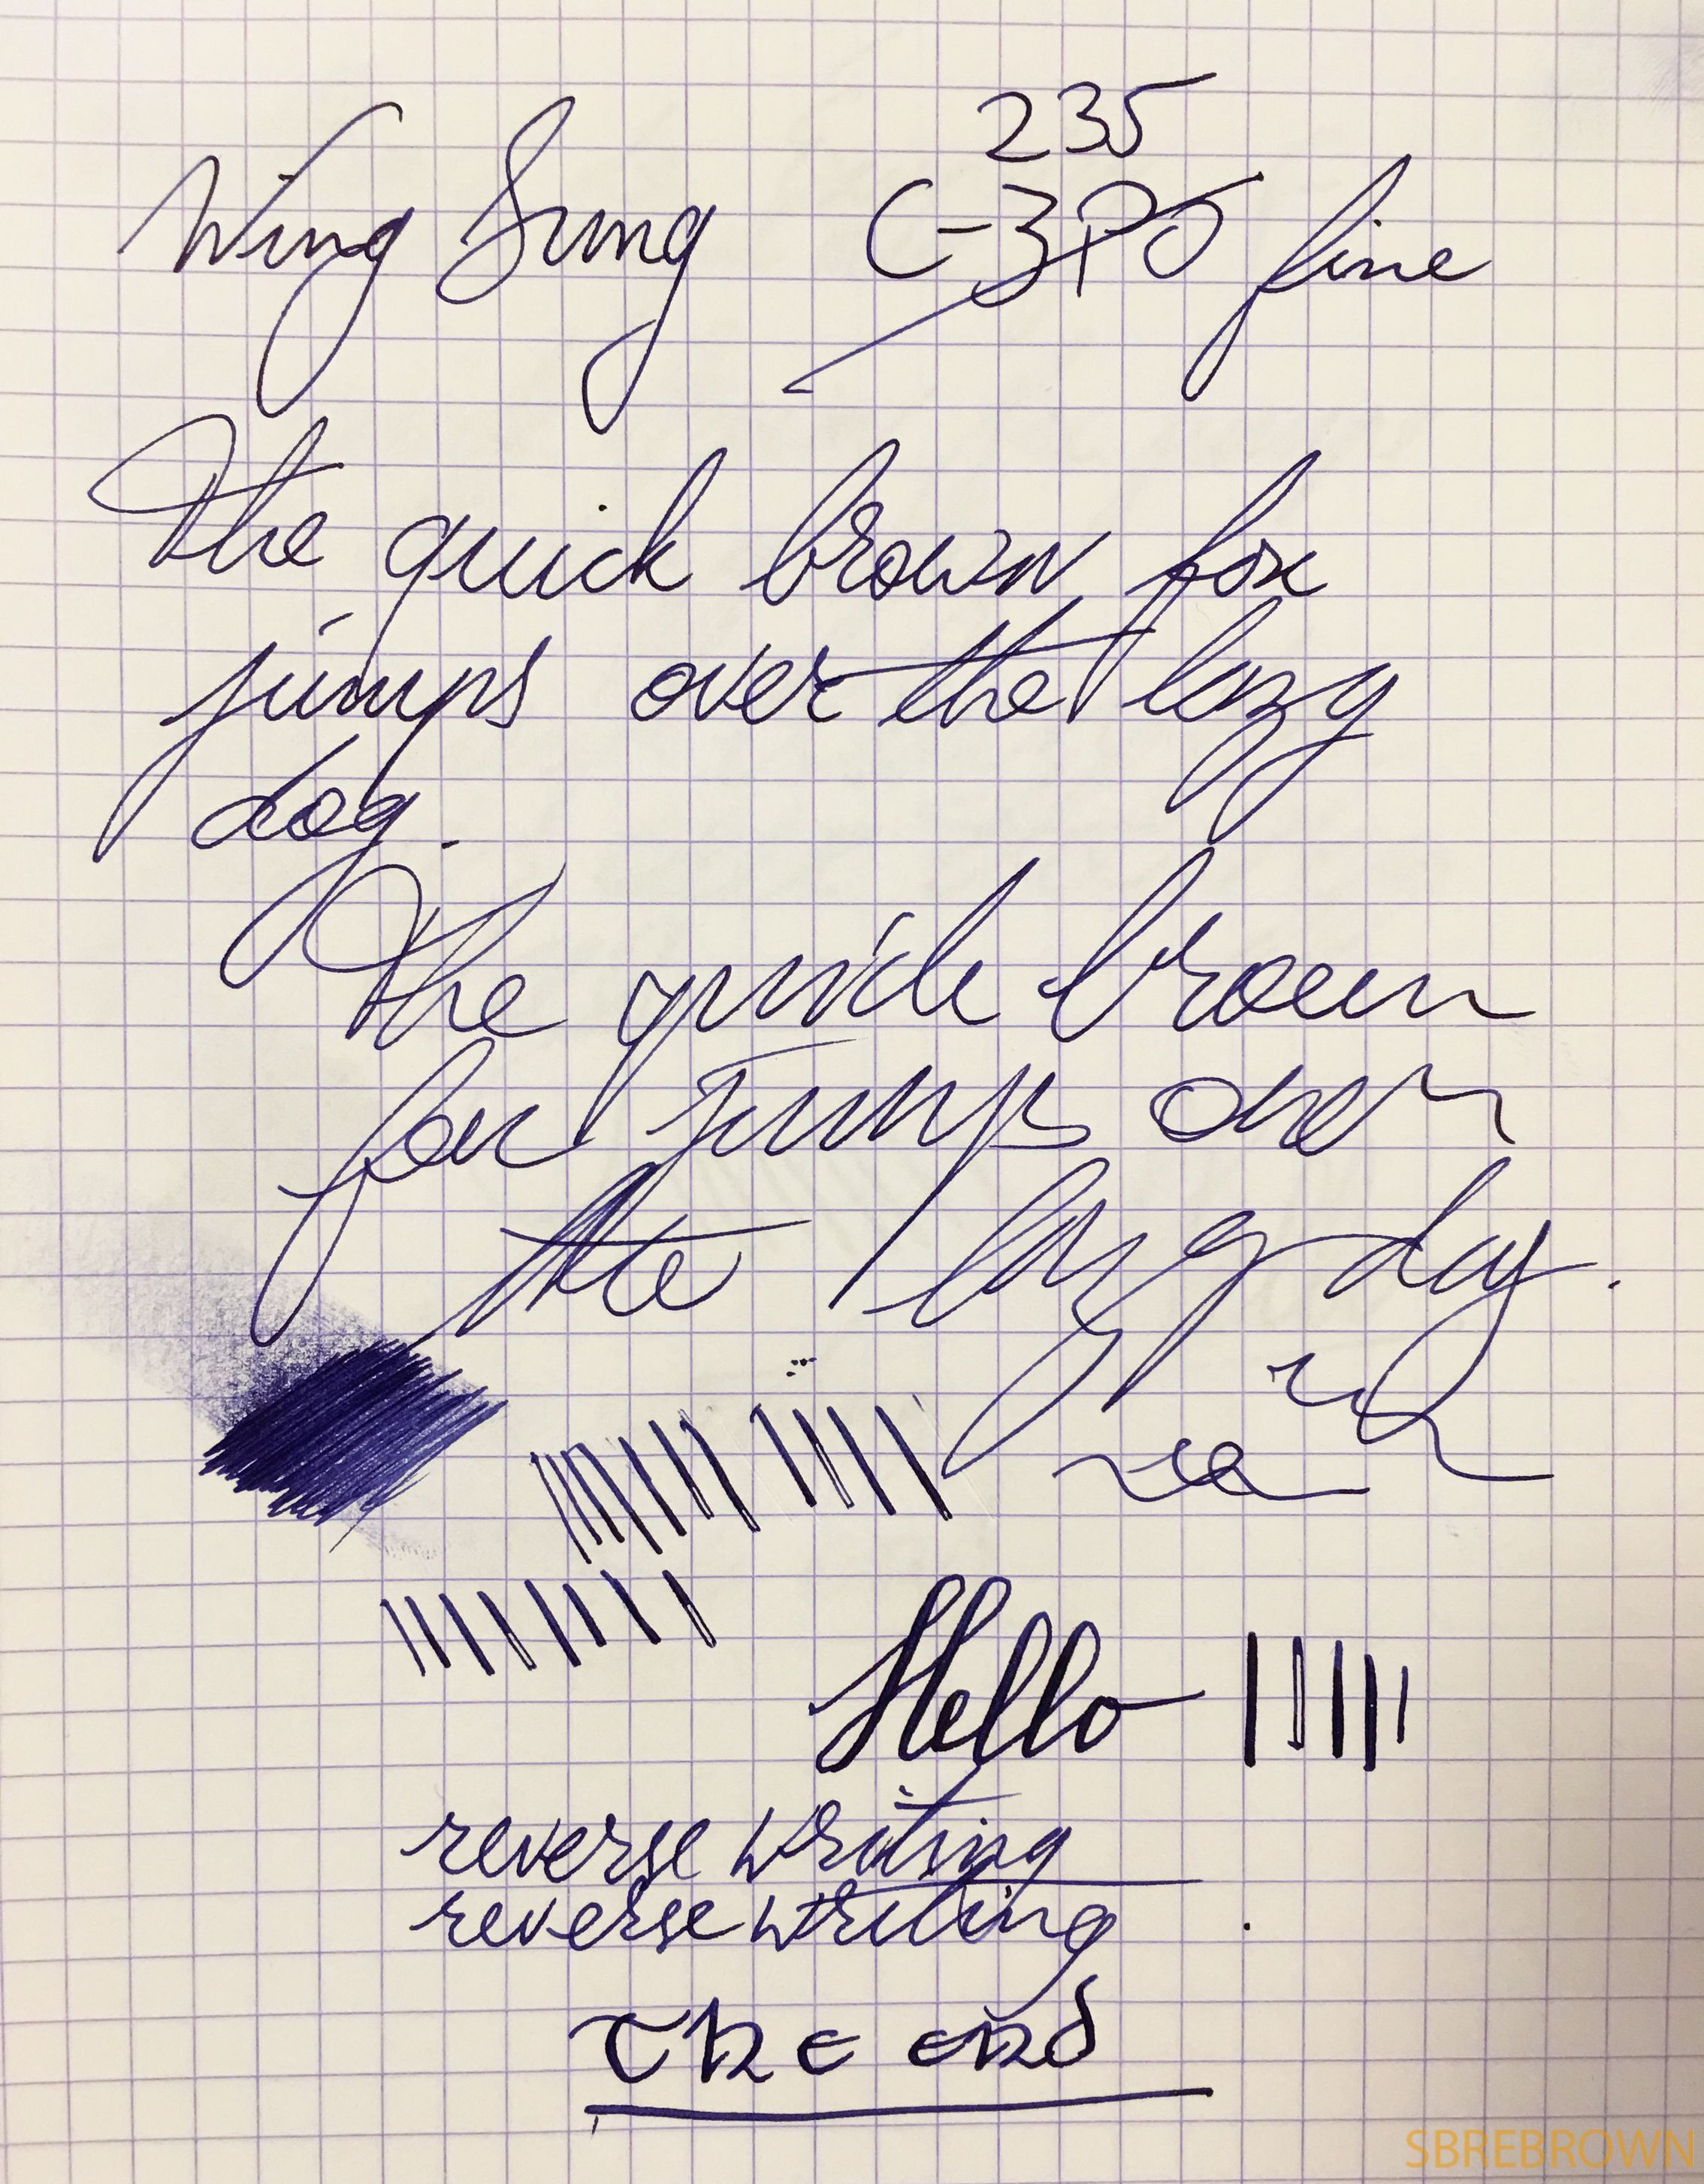 235
Wing Sung C-3PO fine
The quick brown fox
jumps over the lazy
dog.
The quick brown
fox jumps over
the lazy dog.
Hello
reverse writing
reverse writing
The end
SBREBROWN